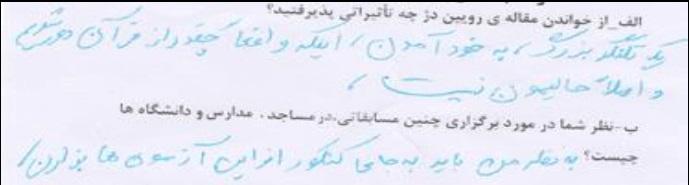 الف_از خواندن مقاله ی رویین دژ چه تأثیراتی پذیرفتید؟
یک تلنگر بزرگ، به خود آمدن، اینکه واقعا چقدر از قرآن دور شدیم
و اصلاً حالیمون نیست،
ب-نظر شما در مورد برگزاری چنین مسابقاتی،در مساجد، مدارس و دانشگاه ها
چیست؟ به نظر من باید به جای کنکور از این آزمون ها بذارن،